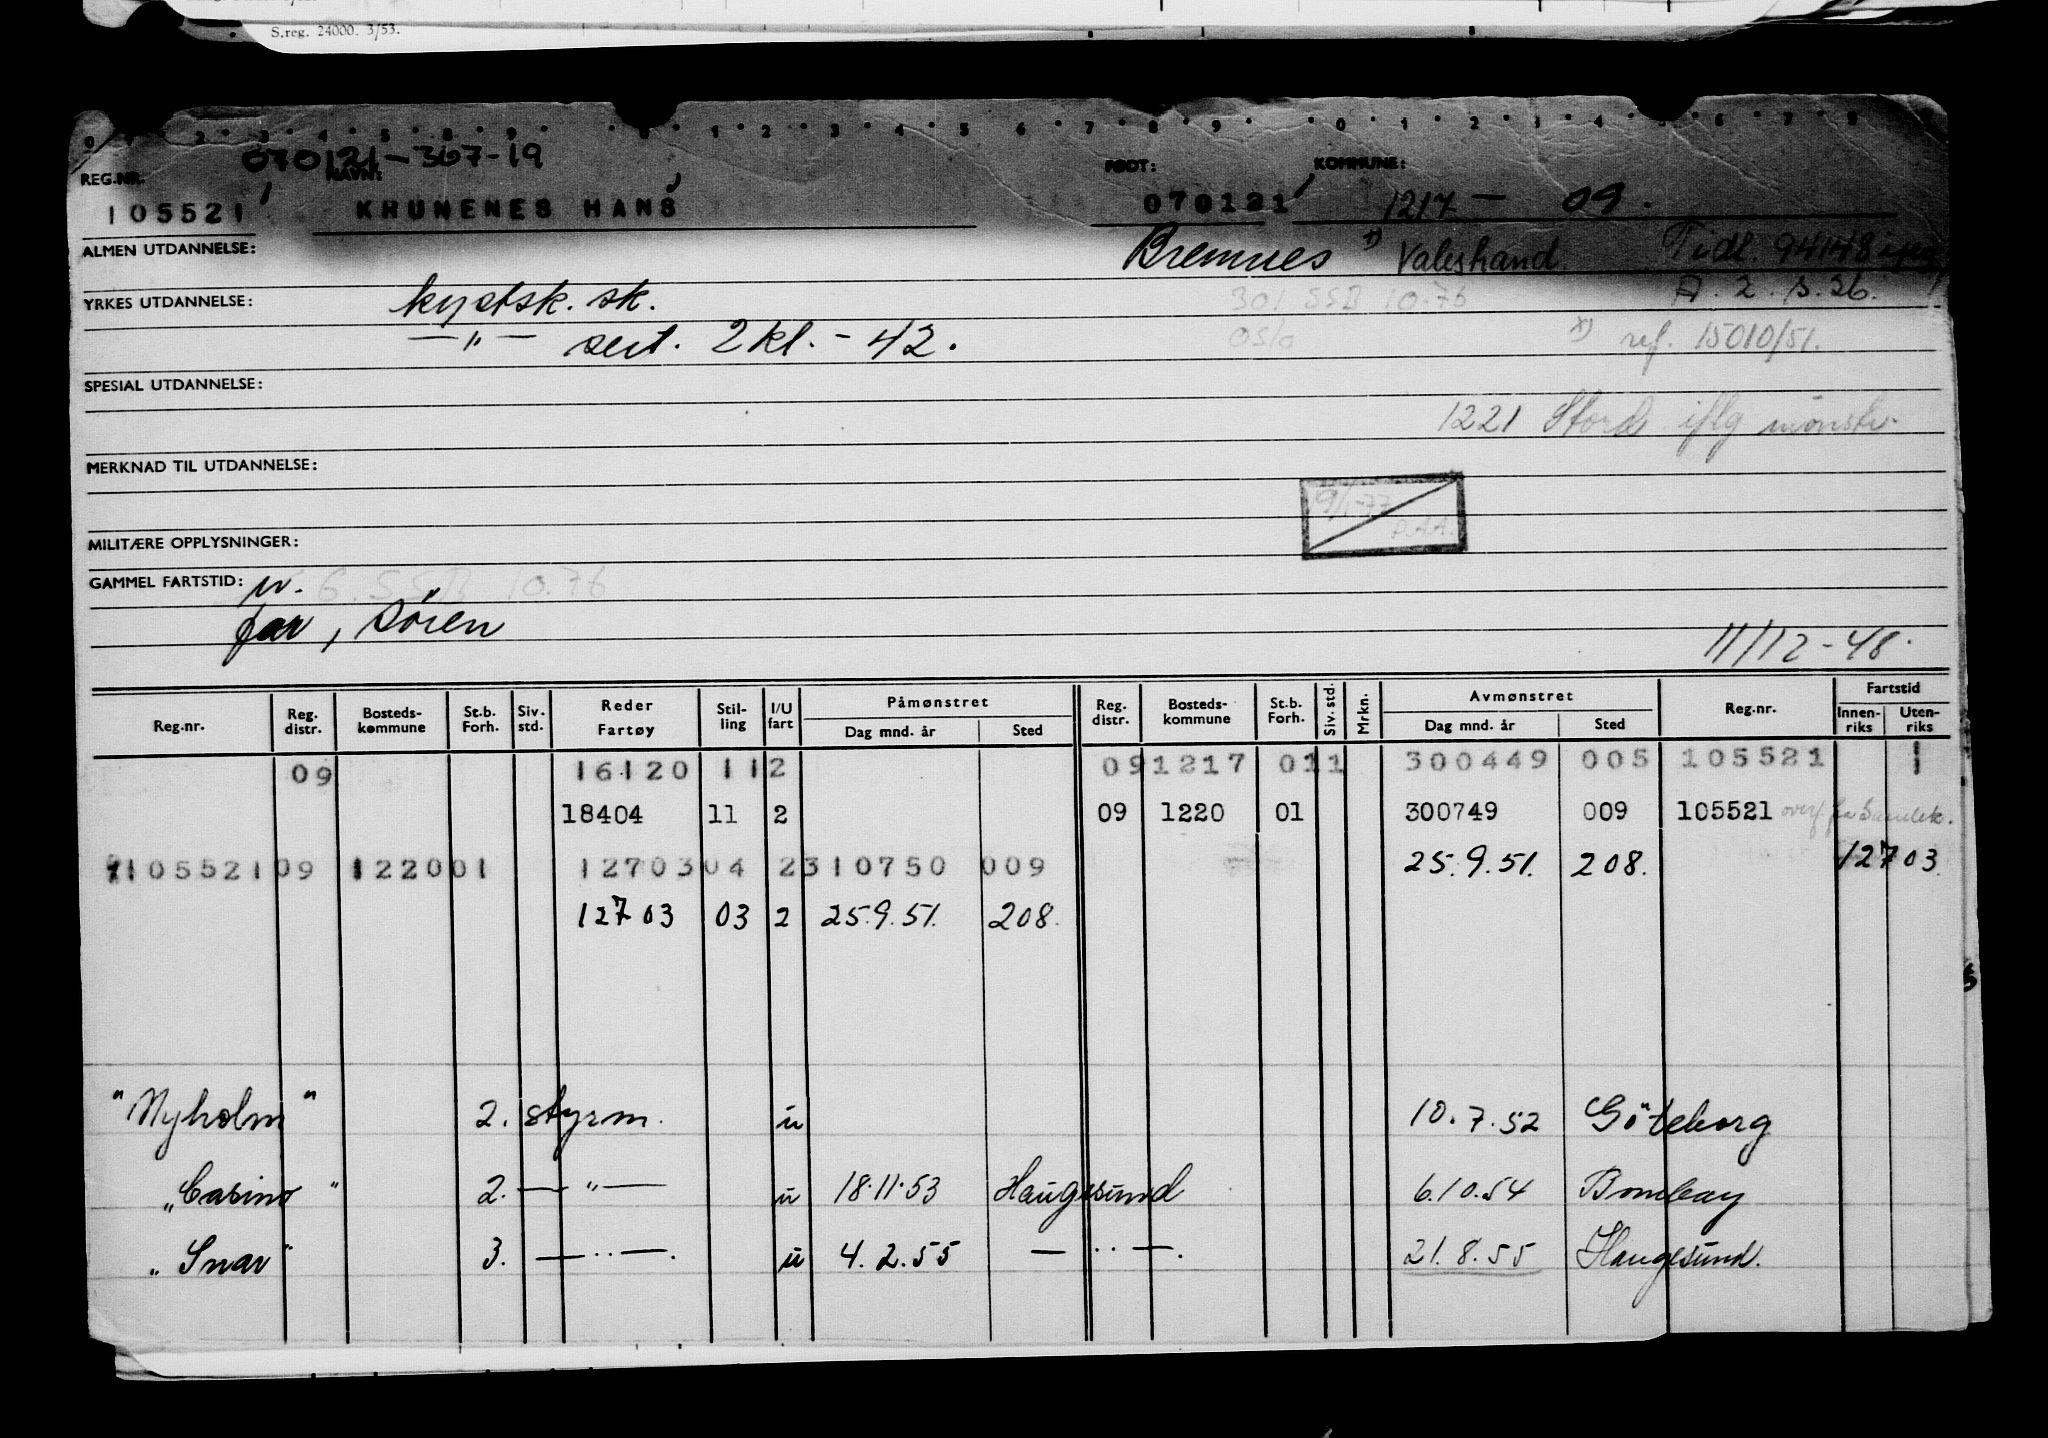 S.reg. 24000. 3/53.
070121-367-19
REG.NR. NAVN: FØDT: KOMMUNE:
105521 KRUNENES HANS 070121 1217 — 09.
ALMEN UTDANNELSE: Bremnes x) Valeshand. Tidl. 94148
YRKES UTDANNELSE: kystsk. sk. 301 SSB 10.76 A. 2. s. 26.
—"— sert. 2 kl. - 42. Oslo x) ref. 15010/51.
SPESIAL UTDANNELSE:
1221 Stord iflg mønstr.
MERKNAD TIL UTDANNELSE:
19/1-77
MILITÆRE OPPLYSNINGER:
GAMMEL FARTSTID: u. G. SSB 10.76
far, Sören
11/12-48.
Reg.nr. Reg. distr. Bosteds-kommune St.b. Forh. Siv. std. Reder Fartøy Stil-ling I/U fart Påmønstret Dag mnd. år Sted Reg. distr. Bosteds-kommune St.b. Forh. Siv. std. Mrkn. Avmønstret Dag mnd. år Sted Reg.nr. Fartstid Innen-riks Uten-riks
09 16120 11 2 09 1217 01 1 300449 005 105521 1
18404 11 2 09 1220 01 300749 009 105521
105521 09 1220 01 12703 04 2 310750 009 25.9.51. 208. 12703
12703 03 2 25.9.51. 208.
"Nyholm" 2. styrm. u 10.7.52 Göteborg
"Casino" 2. —"— u 18.11.53 Haugesund 6.10.54 Bombay
"Snar" 3. —"—. u 4.2.55 —"—. 21.8.55 Haugesund.